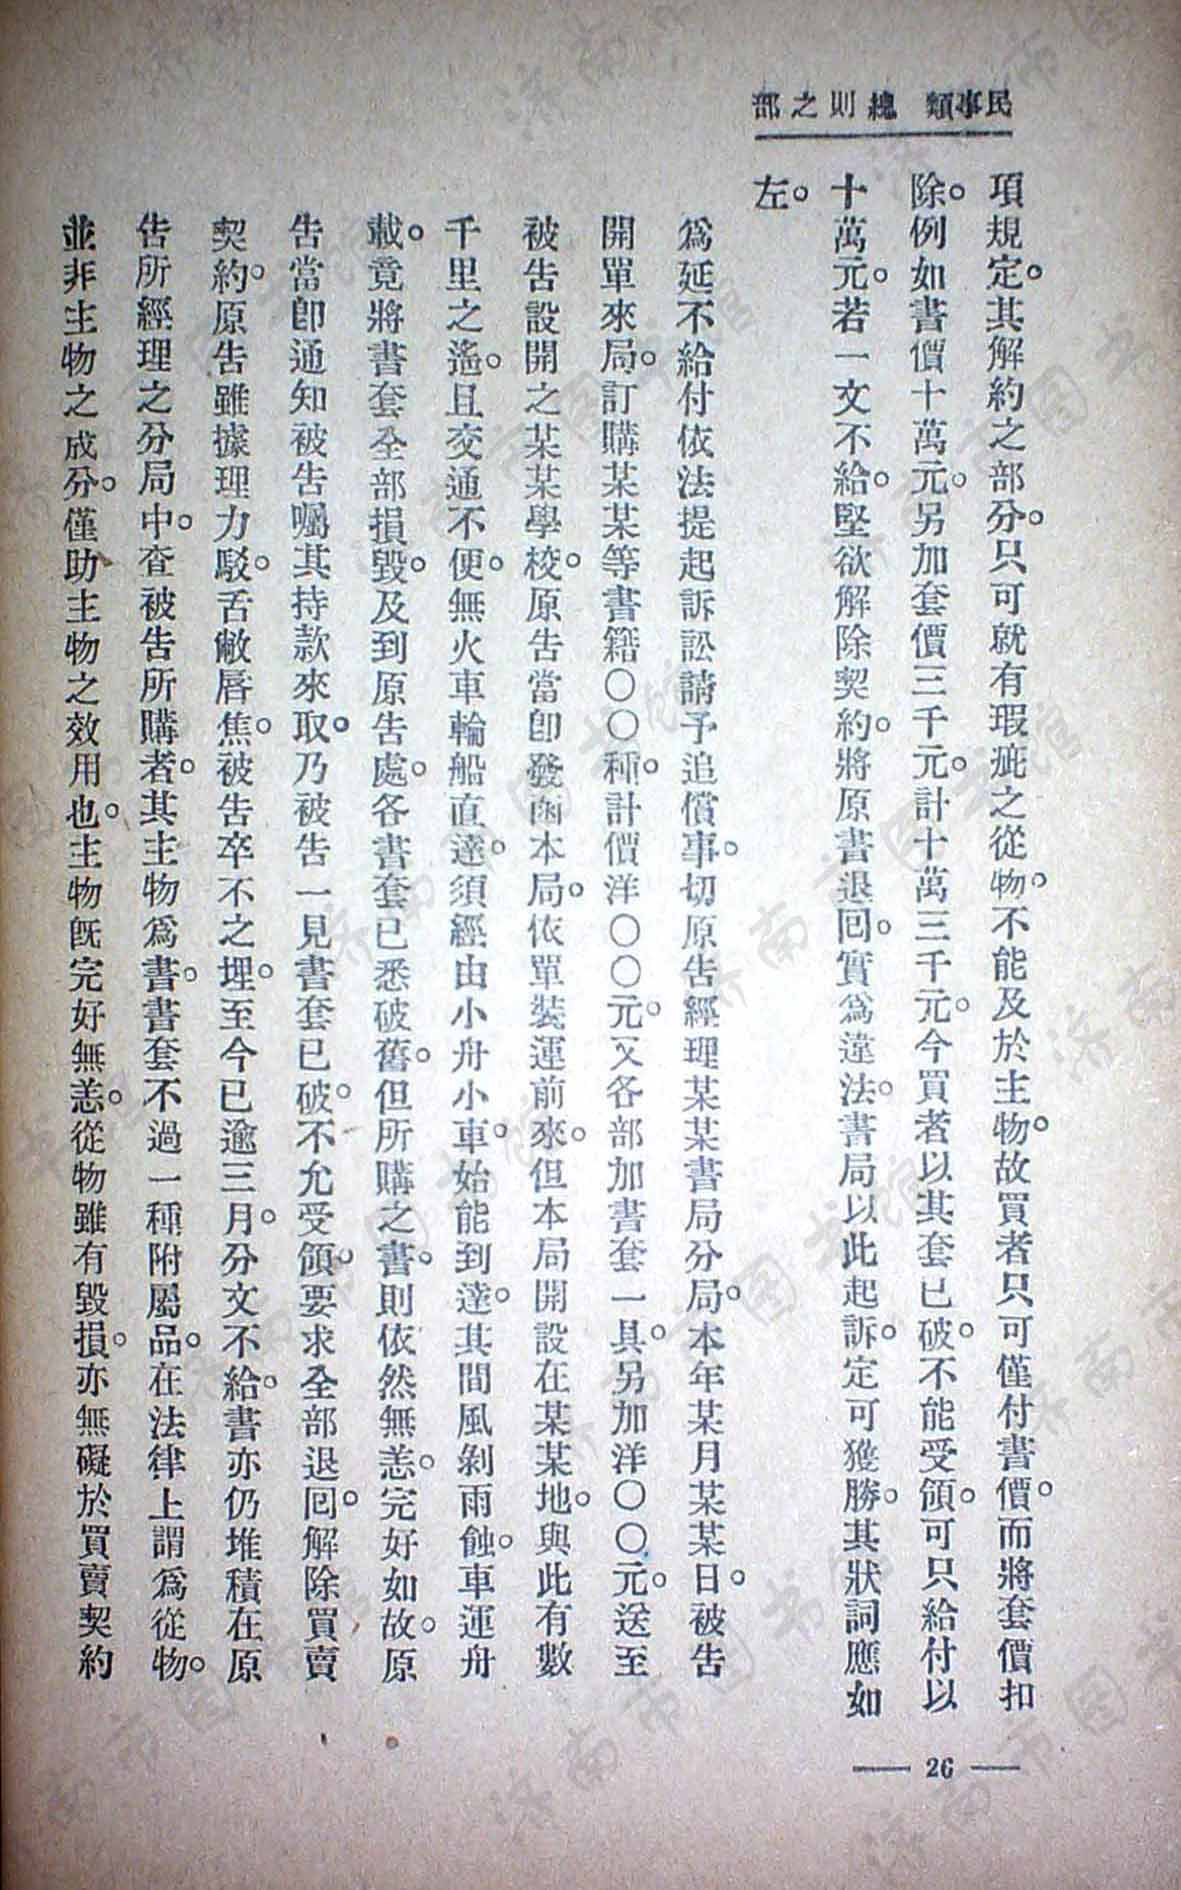 民事類　總則之部
項規定。其解約之部分。只可就有瑕疵之從物。不能及於主物。故買者只可僅付書價。而將套價扣
除。例如書價十萬元。另加套價三千元。計十萬三千元。今買者以其套已破。不能受領。可只給付以
十萬元。若一文不給。堅欲解除契約。將原書退回。實爲違法。書局以此起訴。定可獲勝。其狀詞應如
左。
爲延不給付依法提起訴訟請予追償事。切原告經理某某書局分局。本年某月某某日。被告
開單來局。訂購某某等書籍〇〇種。計價洋〇〇元。又各部加書套一具。另加洋〇〇元。送至
被告設開之某某學校。原告當卽發函本局。依單裝運前來。但本局開設在某某地。與此有數
千里之遙。且交通不便。無火車輪船直達。須經由小舟小車。始能到達。其間風剝雨蝕。車運舟
載。竟將書套全部損毀。及到原告處。各書套已悉破舊。但所購之書。則依然無恙。完好如故。原
告當卽通知被告囑其持款來取。乃被告一見書套已破。不允受領。要求全部退回。解除買賣
契約。原告雖據理力駁。舌敝唇焦。被告卒不之理。至今已逾三月。分文不給。書亦仍堆積在原
告所經理之分局中。查被告所購者。其主物爲書。書套不過一種附屬品。在法律上謂爲從物。
並非主物之成分。僅助主物之效用也。主物旣完好無恙。從物雖有毀損。亦無礙於買賣契約
26
济南市图书馆